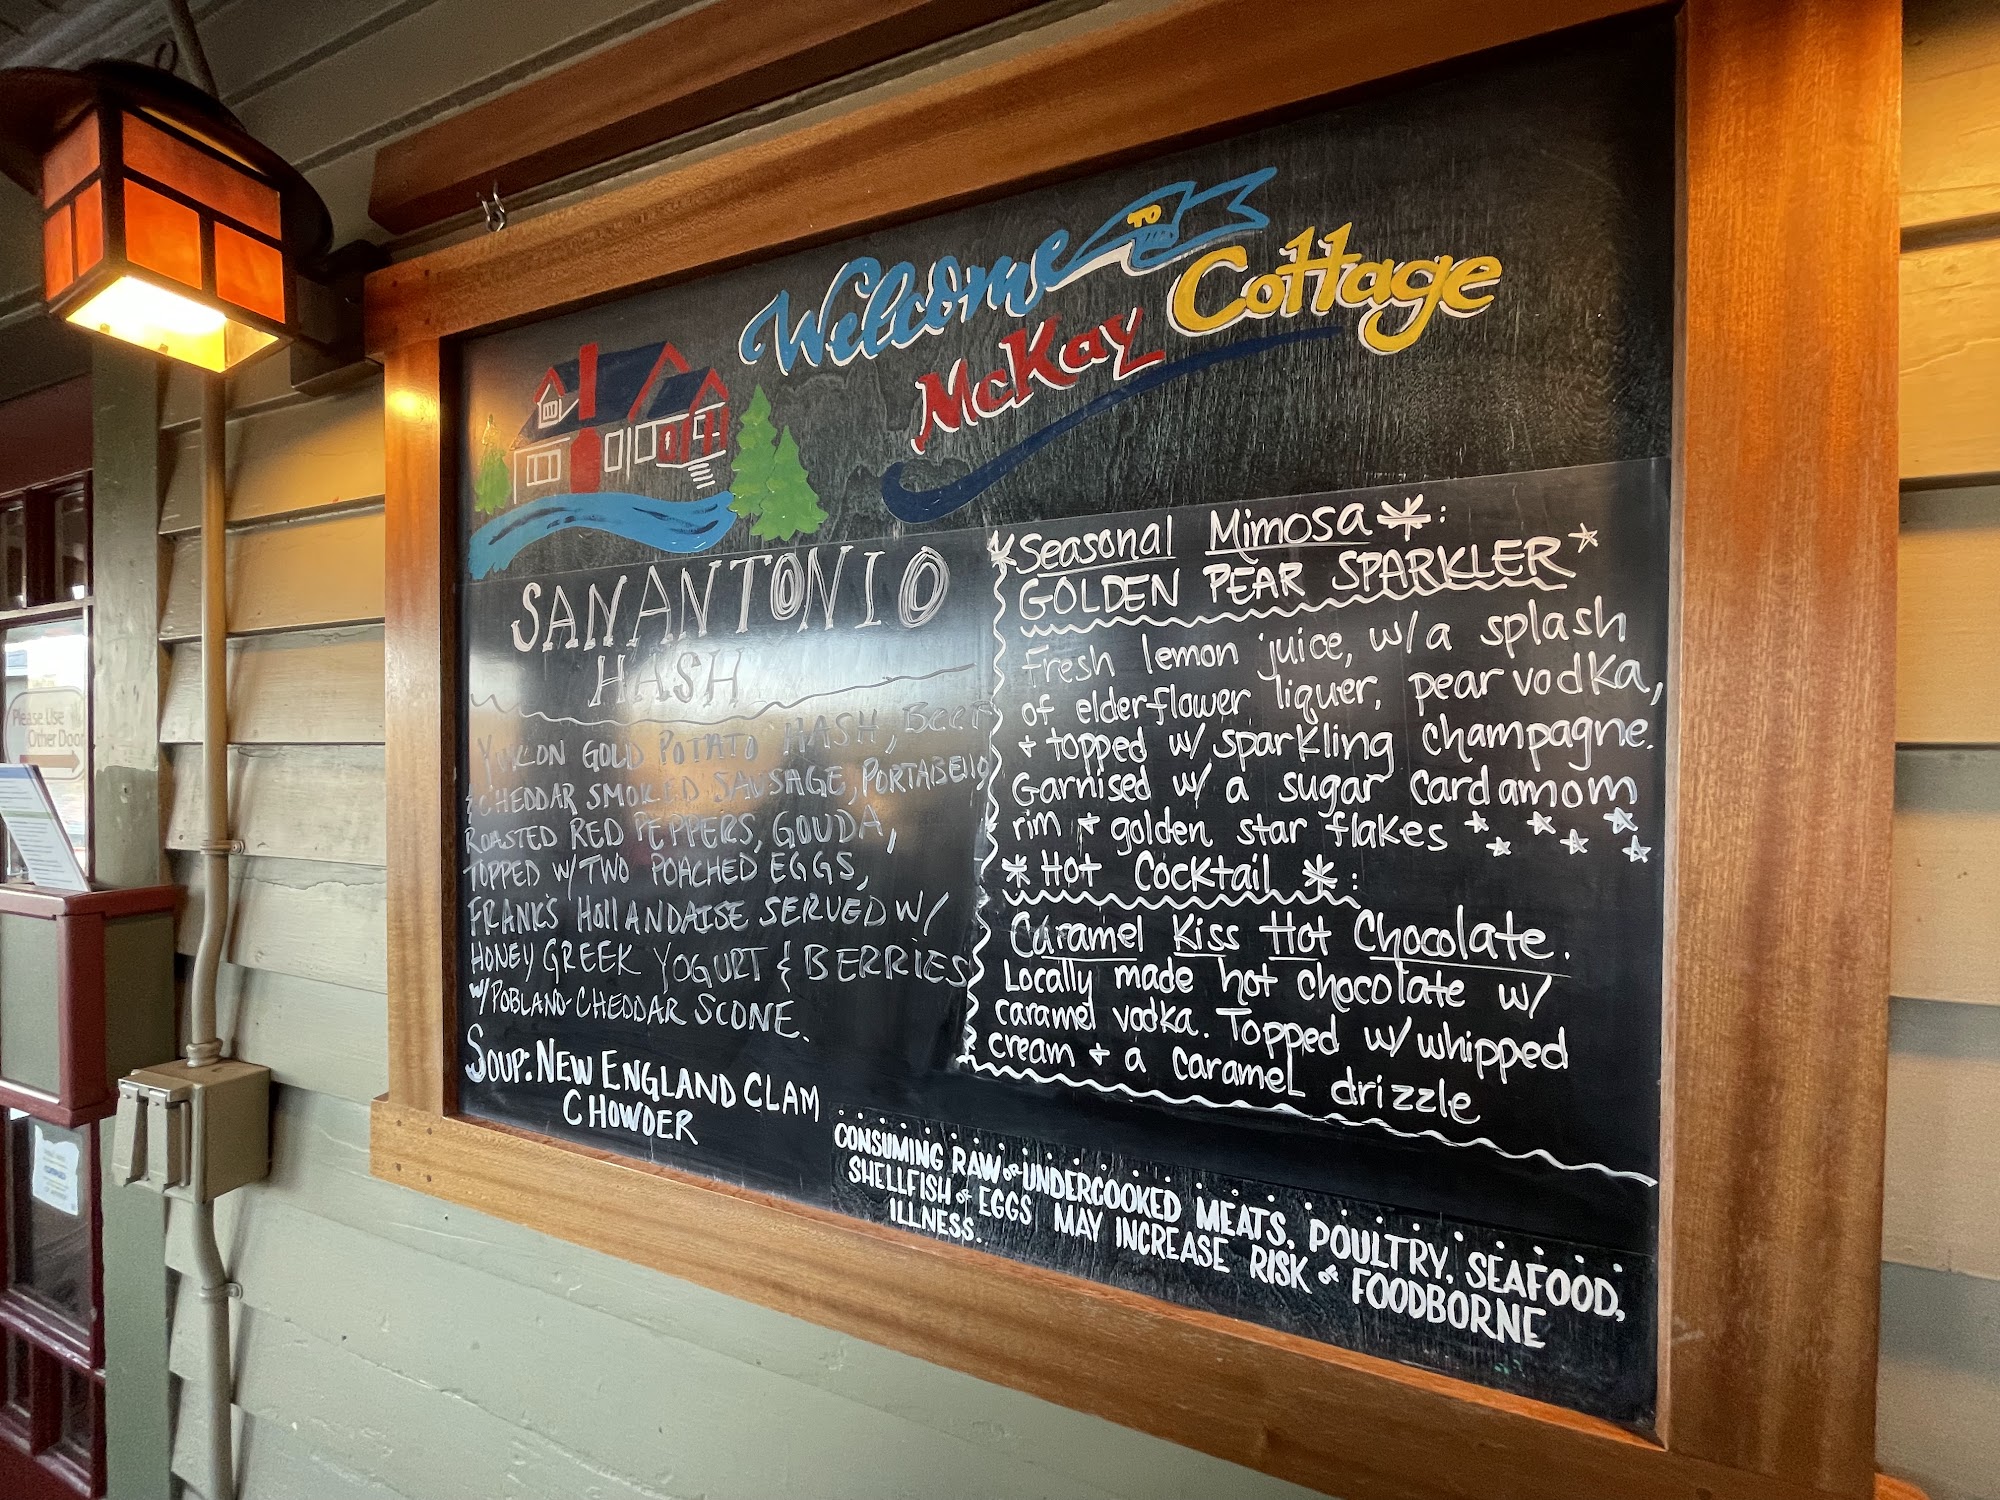 Welcome TO
McKay Cottage
SAN ANTONIO
HASH
YUKON GOLD POTATO HASH, BEEF
& CHEDDAR SMOKED SAUSAGE, PORTABELLO
ROASTED RED PEPPERS, GOUDA,
TOPPED W/ TWO POACHED EGGS,
FRANK'S HOllANDAISE SERVED W/
HONEY GREEK YOGURT & BERRIES
W/ POBLANO-CHEDDAR SCONE.
SOUP: NEW ENGLAND CLAM
CHOWDER
*Seasonal Mimosa*:
GOLDEN PEAR SPARKLER*
Fresh lemon juice, w/a splash
of elderflower liquer, pear vodka,
+ topped w/ sparkling champagne.
Garnised w/ a sugar cardamom
rim + golden star flakes
*Hot Cocktail*:
Caramel Kiss Hot Chocolate.
Locally made hot chocolate w/
caramel vodka. Topped w/ whipped
cream + a caramel drizzle
CONSUMING RAW OR UNDERCOOKED MEATS, POULTRY, SEAFOOD,
SHELLFISH or EGGS MAY INCREASE RISK of FOODBORNE
ILLNESS.
Please Use
Other Door